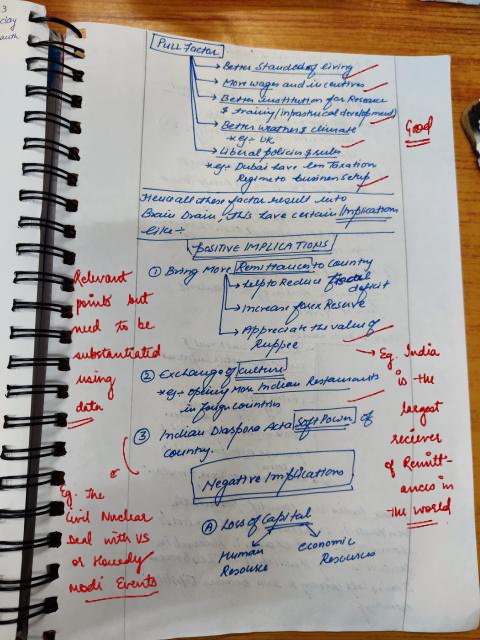 3
day
Pull Factor
→ Better Standed of living
→ More wages and incentives
→ Better institution for Research
& training (infrastrucal development)
→ Better weather & climate
* eg:- UK
Good
→ Liberal policies & rules
* eg:- Dubai have len Taxation
Regime to business setup
Hence all these factor result into
Brain Drain, this have certain Implications
like :-
POSITIVE IMPLICATIONS
① Bring More Remittances to Country
→ help to Reduce fiscal
deficit
→ Increase forex Reserve
→ Appreciate the value of
Ruppee
Relevant
points but
need to be
substantiated
using
data
→ Eg. India
is the
largest
reciever
of Remitt-
ances in
the world
② Exchange of culture
* eg:- opening more Indian Restaurants
in foreign countries
③ Indian Diaspora Act a Soft Power of
country.
Eg. The
Civil Nuclear
Deal with US
or Howdy
Modi Events
Negative Implications
Ⓐ Loss of Capital
Human
Resource
economic
Resources